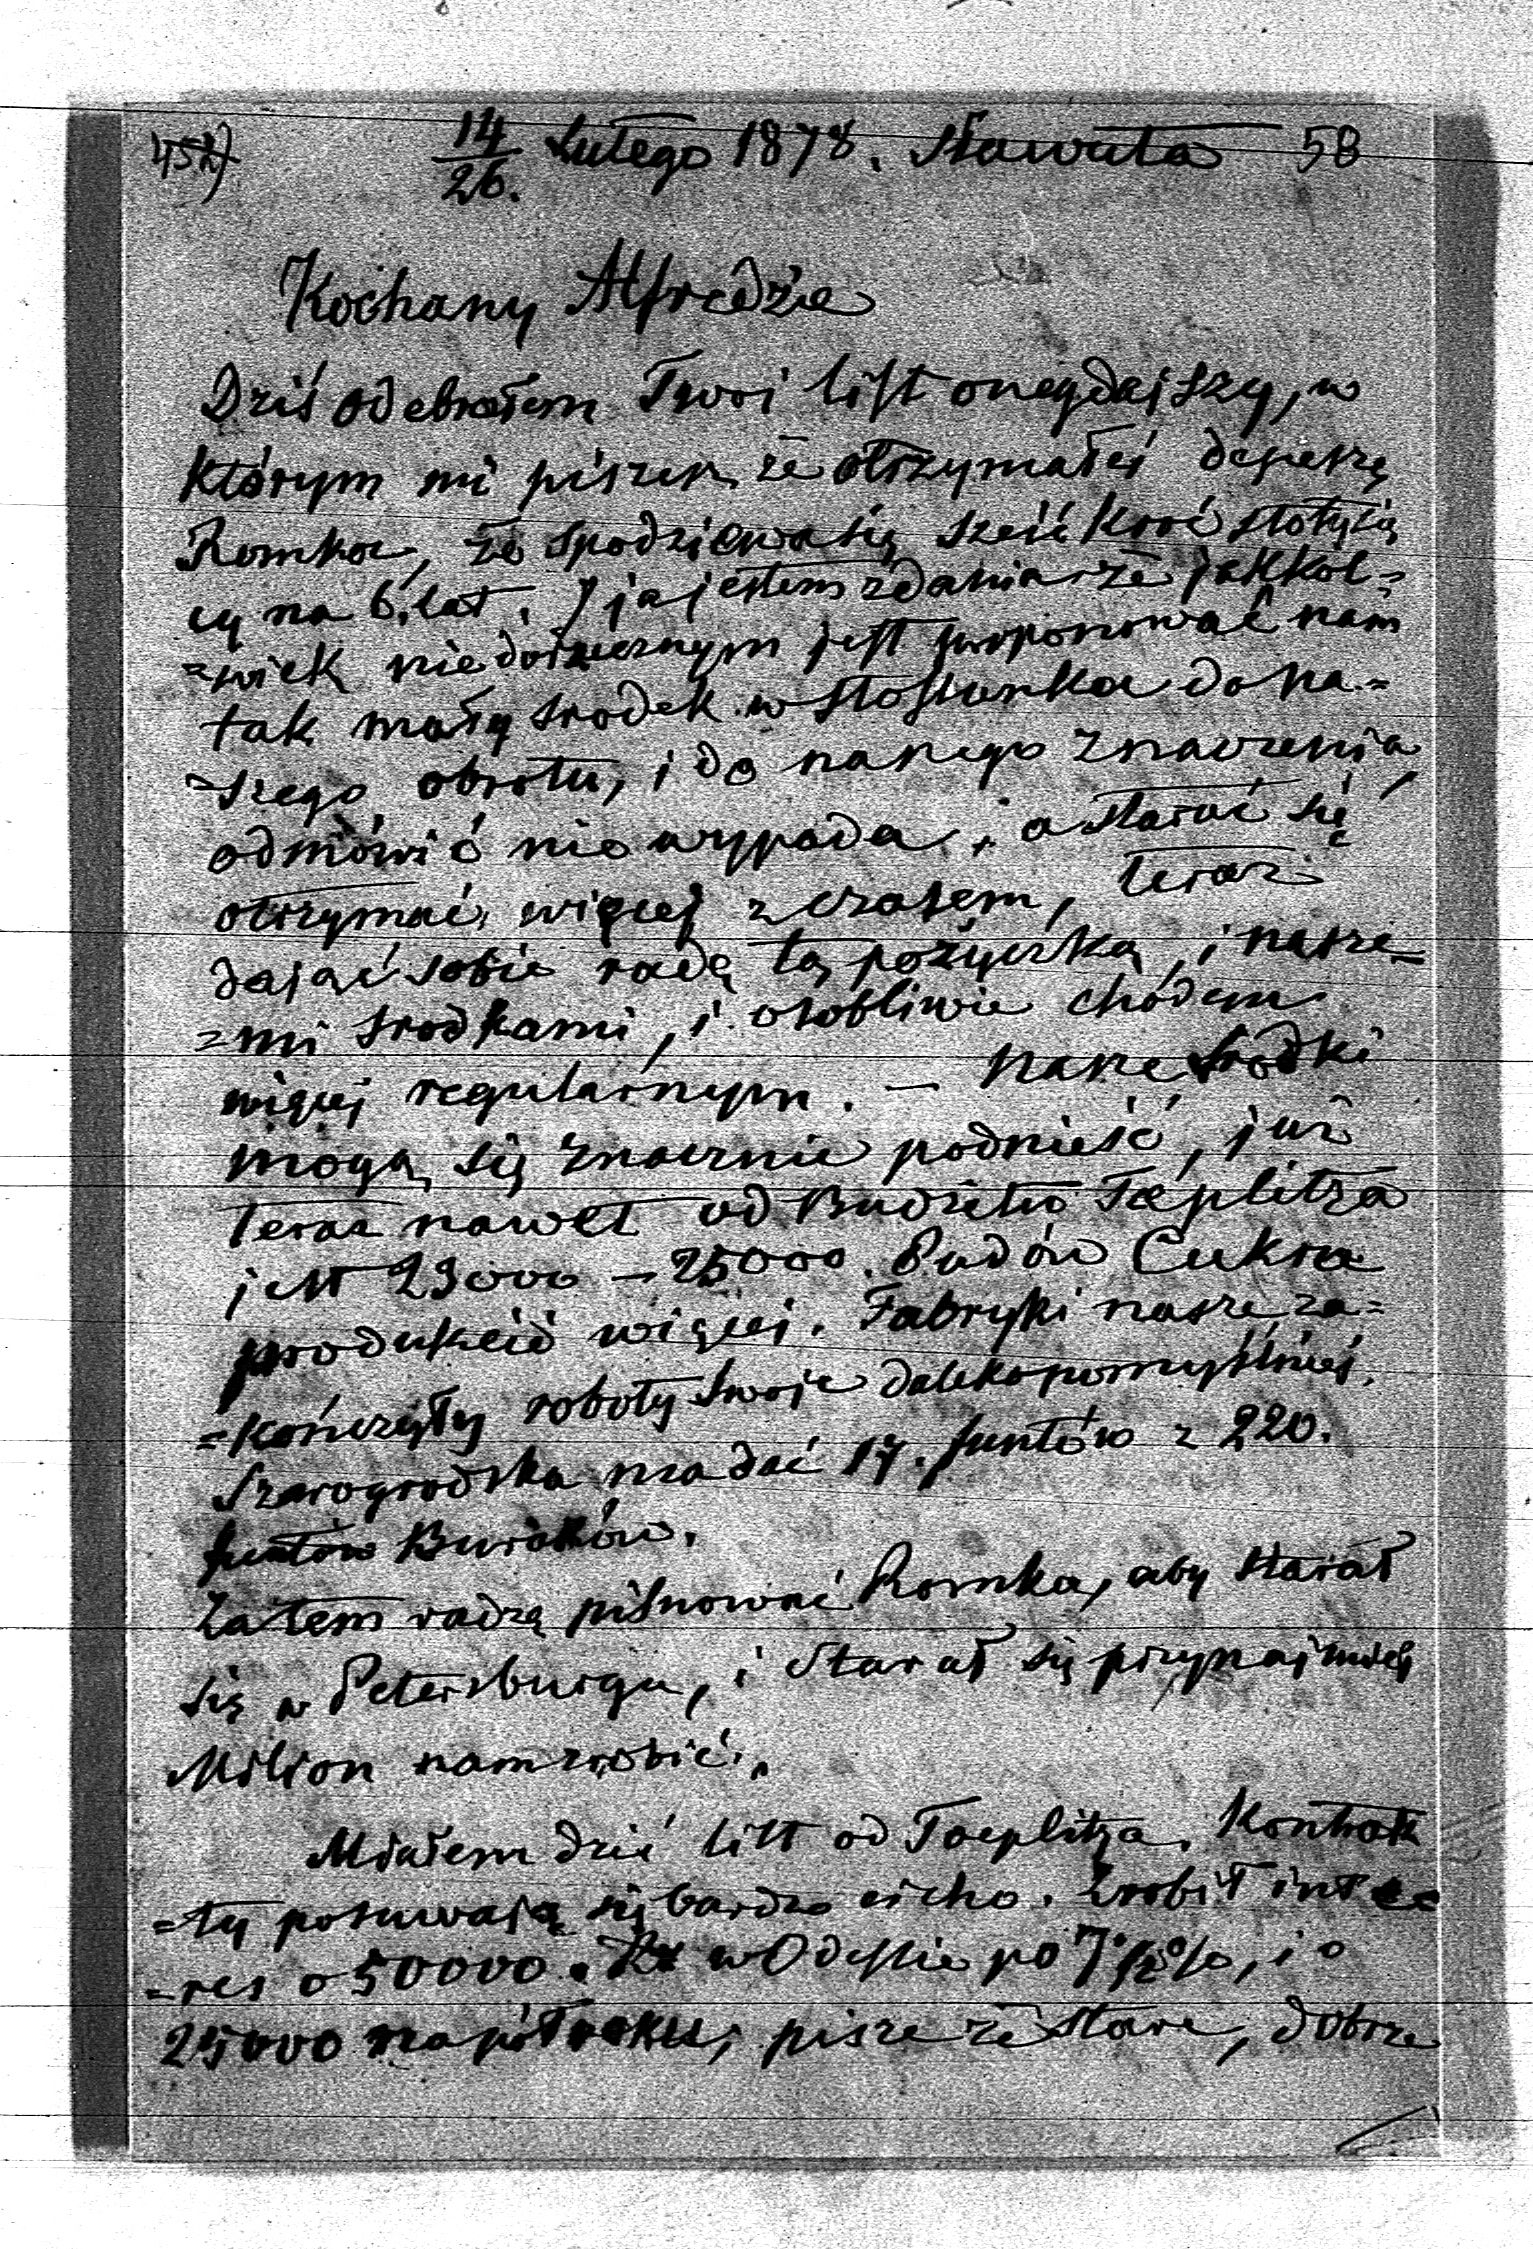 14/26. Lutego 1878. Sławuta 58
Kochany Alfredzie
Dziś odebrałem Twoi list onegdajszy, w
którym mi piszesz że otrzymałeś depeszę
Romka, że spodziewa się sześć kroć stotysię
cy na 6. lat. I ja jestem zdania że jakkol=
=wiek niedorzecznym jest proponować nam
tak mały srodek w stosunku do na=
=szego obrotu, i do naszego znaczenia,
odmówić nie wypada, a starać się
otrzymać więcej z czasem, teraz
dając sobie radę tą pożyczką, i nasze=
=mi srodkami, i osobliwie chodem
więcej regularnym. — Nasze srodki
mogą się znacznie podnieść, już
teraz nawet od Budżetu Taeplitza
jest 23000 – 25000. Pudów Cukru
produkcie więcej. Fabryki nasze za=
=kończyły roboty swoje daleko pomyślniej.
Szarogrodska ma dać 17. funtów z 220.
funtów Buraków.
Zatem radzę pilnować Romka, aby starał
się w Petersburgu, i starał się przynajmniej
Milion nam zrobić.
Miałem dziś list od Taeplitza. Kontrak
=ty posuwają się bardzo cicho. Zrobił inte=
=res o 50000. Rs w Odessie po 7 1/2 %, i o
25000 na pół roku, pisze że stare, dobrze